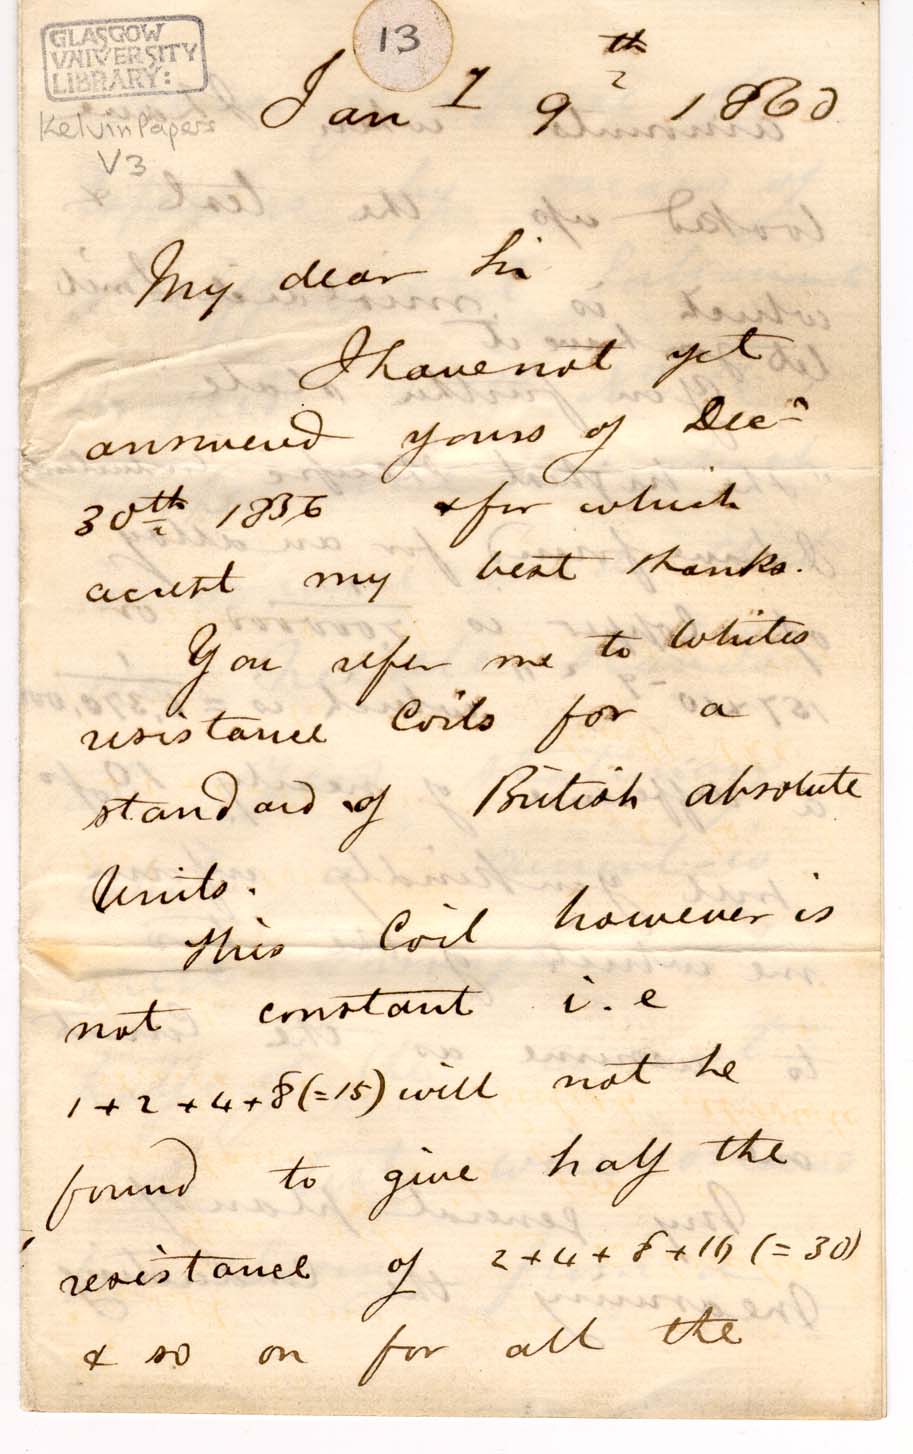 GLASGOW
UNIVERSITY
LIBRARY:
Kelvin Papers
V3
13
Jany 9th 1860
My dear Sir
I have not yet
answered yours of Decr
30th 1856 & for which
accept my best thanks.
You refer me to Whites
resistance Coils for a
standard of British absolute
Units.
This Coil however is
not constant i.e
1+2+4+8(=15) will not be
found to give half the
resistance of 2+4+8+16 (=30)
& so on for all the